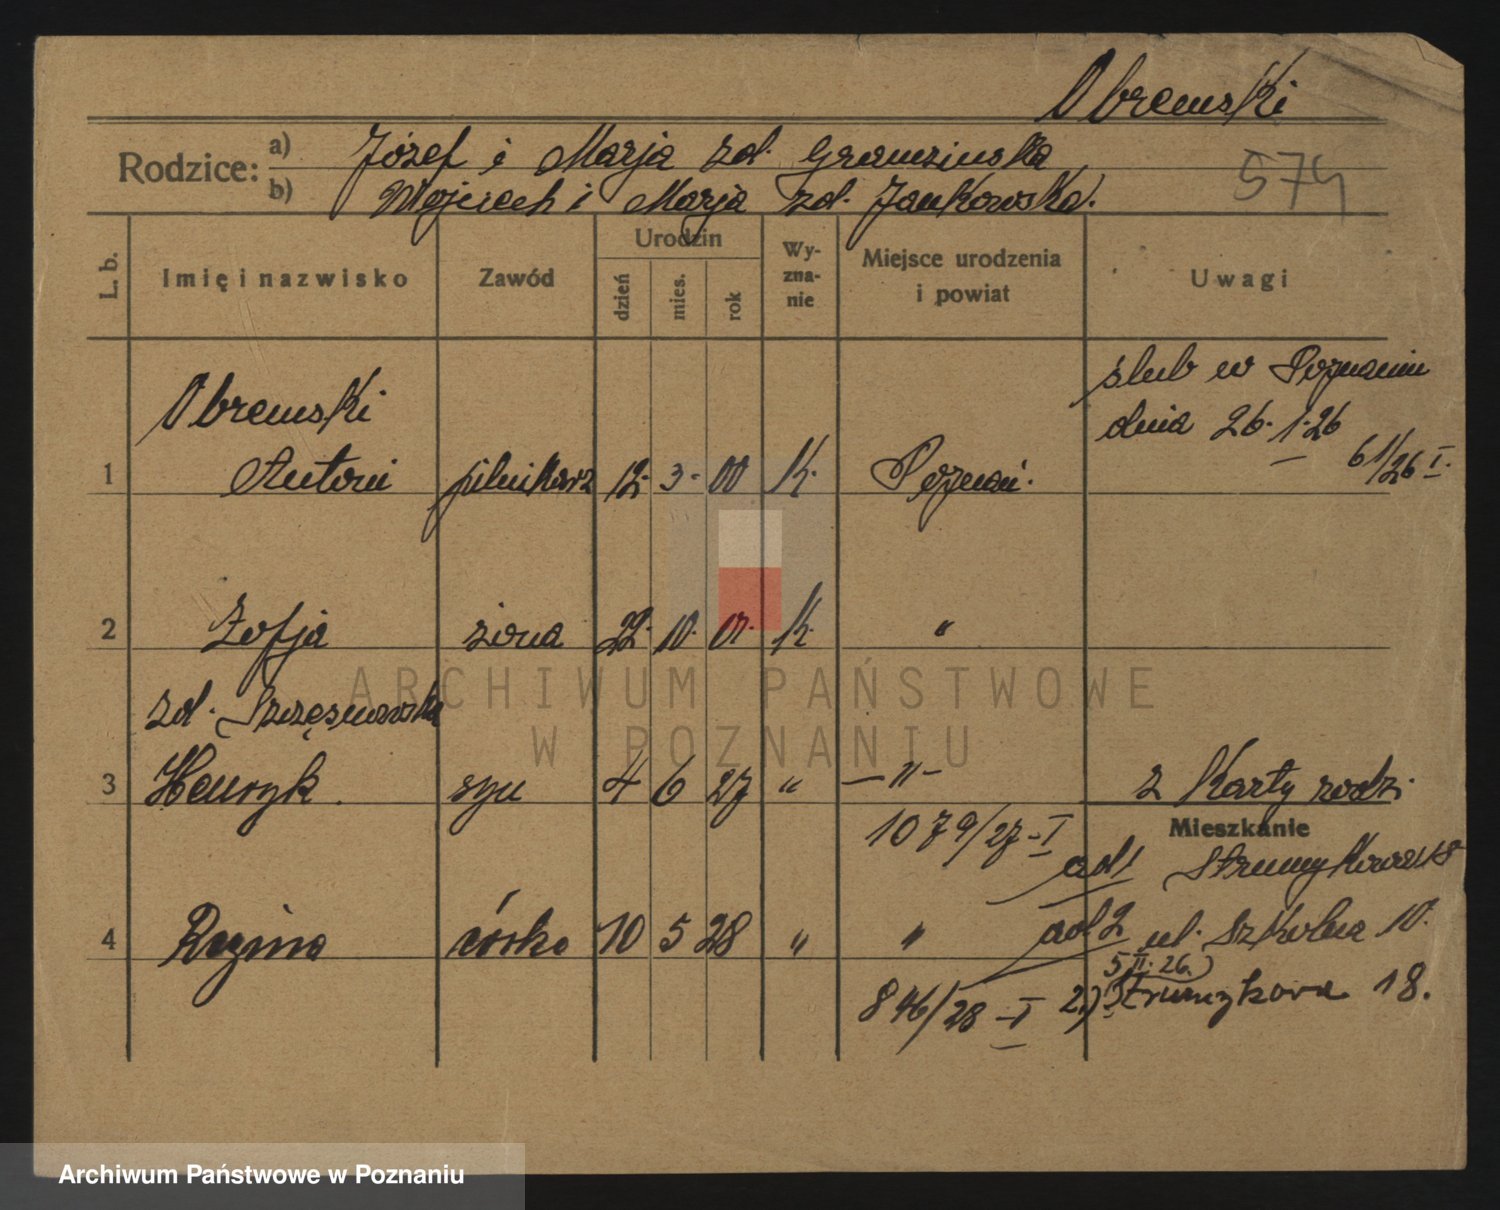 Obremski
Rodzice:
a) Józef i Marja zd. Gramzinska
b) Wojciech i Marja zd. Jankowska.
574
L. b.
Imię i nazwisko
Zawód
Urodzin
dzień
mies.
rok
Wy-
zna-
nie
Miejsce urodzenia
i powiat
Uwagi
ślub w Poznaniu
dnia 26.1.26
61/26 I.
Obremski
1 Antoni pilnikarz 12. 3. 00 K. Poznań.
2 Zofja żona 22. 10. 01. K. "
zd. Szczęsnowska
3 Henryk syn 4 6 27 " — " — z Karty rodz.
1079/27 - I
Mieszkanie
ad 1 Strumykowa 18
4 Regina córka 10 5 28 " " ad 2 ul. Szkolna 10.
5 II. 26.)
846/28 - I 2.) Strumykowa 18.
ARCHIWUM PAŃSTWOWE
W POZNANIU
Archiwum Państwowe w Poznaniu